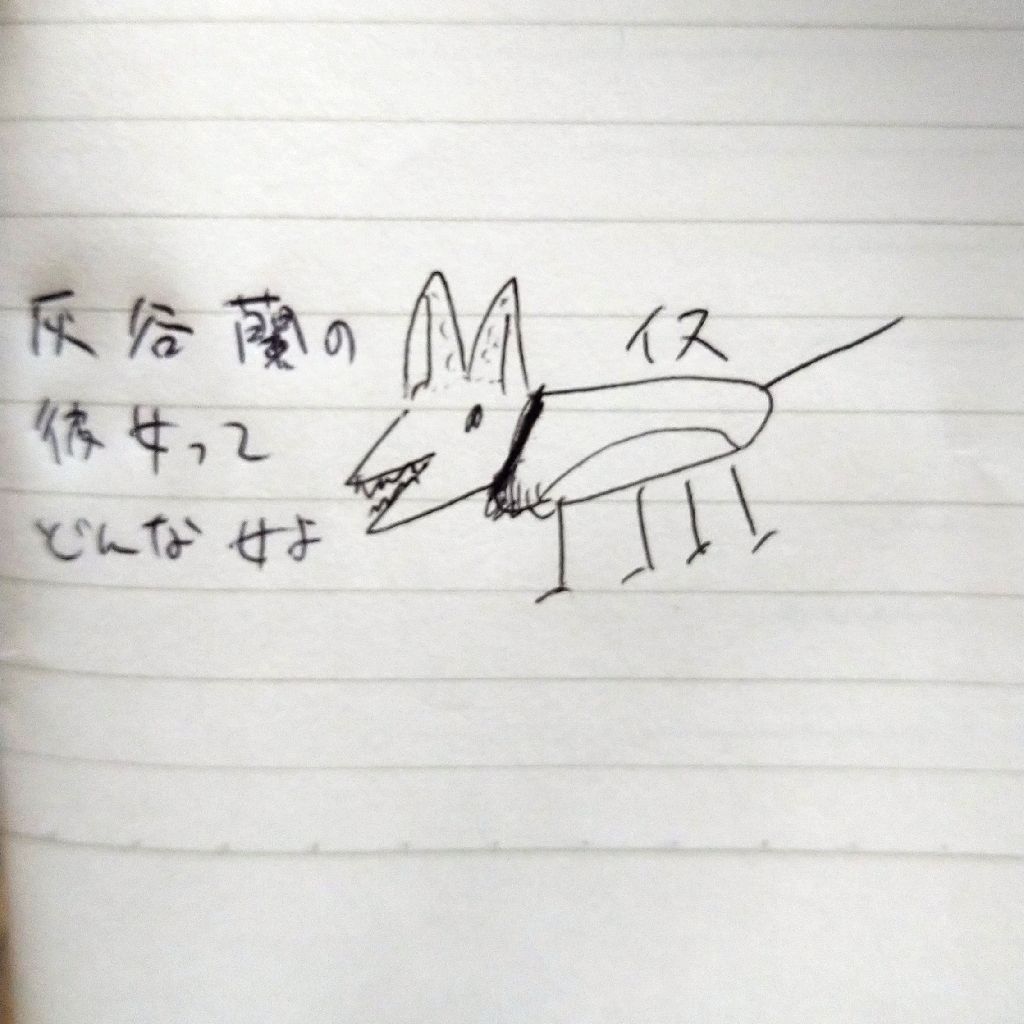 灰谷蘭の
彼女って
どんな女よ
イヌ